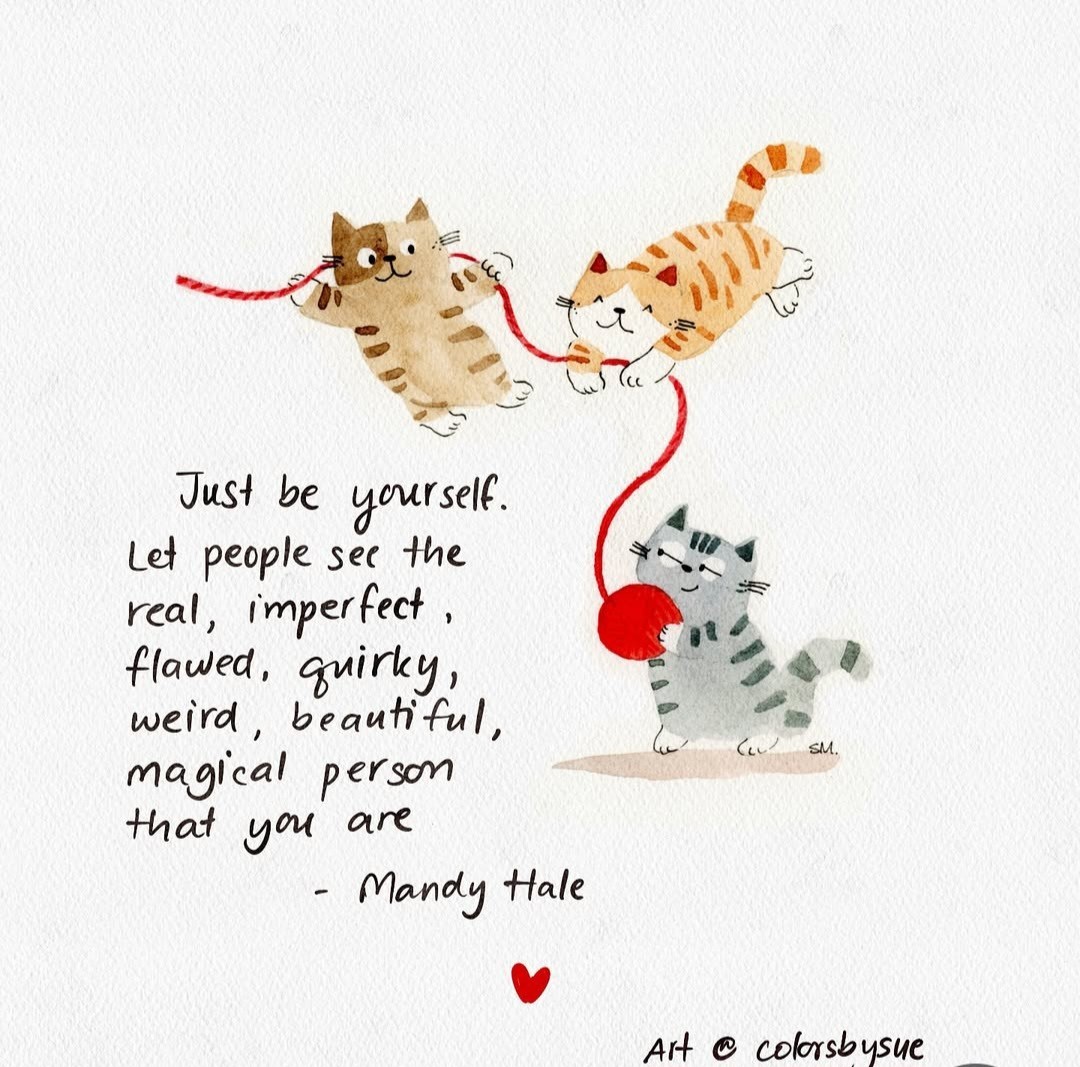 SM.
Just be yourself.
Let people see the
real, imperfect,
flawed, quirky,
weird, beautiful,
magical person
that you are
- Mandy Hale
Art @ colorsbysue